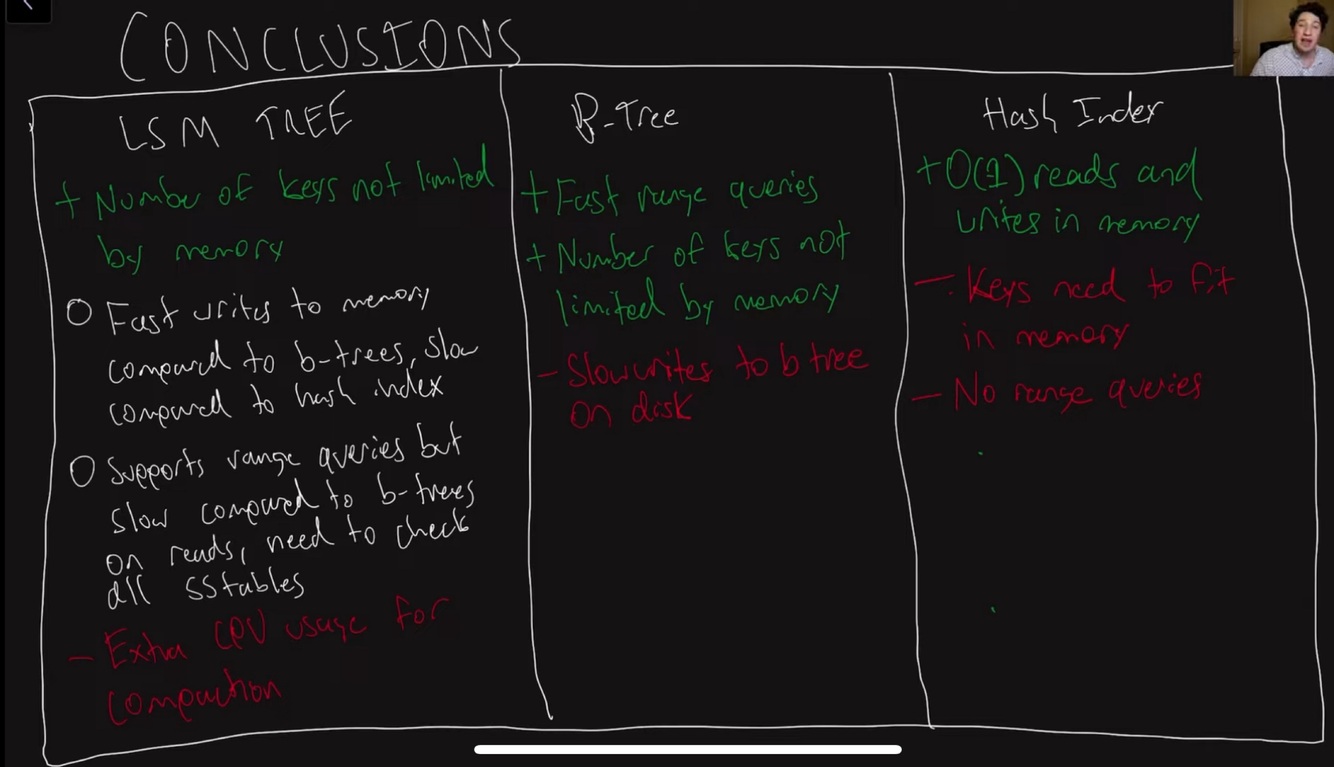 CONCLUSIONS
LSM TREE
+ Number of keys not limited
by memory
O Fast writes to memory
compared to b-trees, slow
compared to hash index
O Supports range queries but
slow compared to b-trees
on reads, need to check
all SStables
- Extra CPU usage for
compaction
B-Tree
+ Fast range queries
+ Number of keys not
limited by memory
- Slow writes to b tree
on disk
Hash Index
+ O(1) reads and
writes in memory
- Keys need to fit
in memory
- No range queries